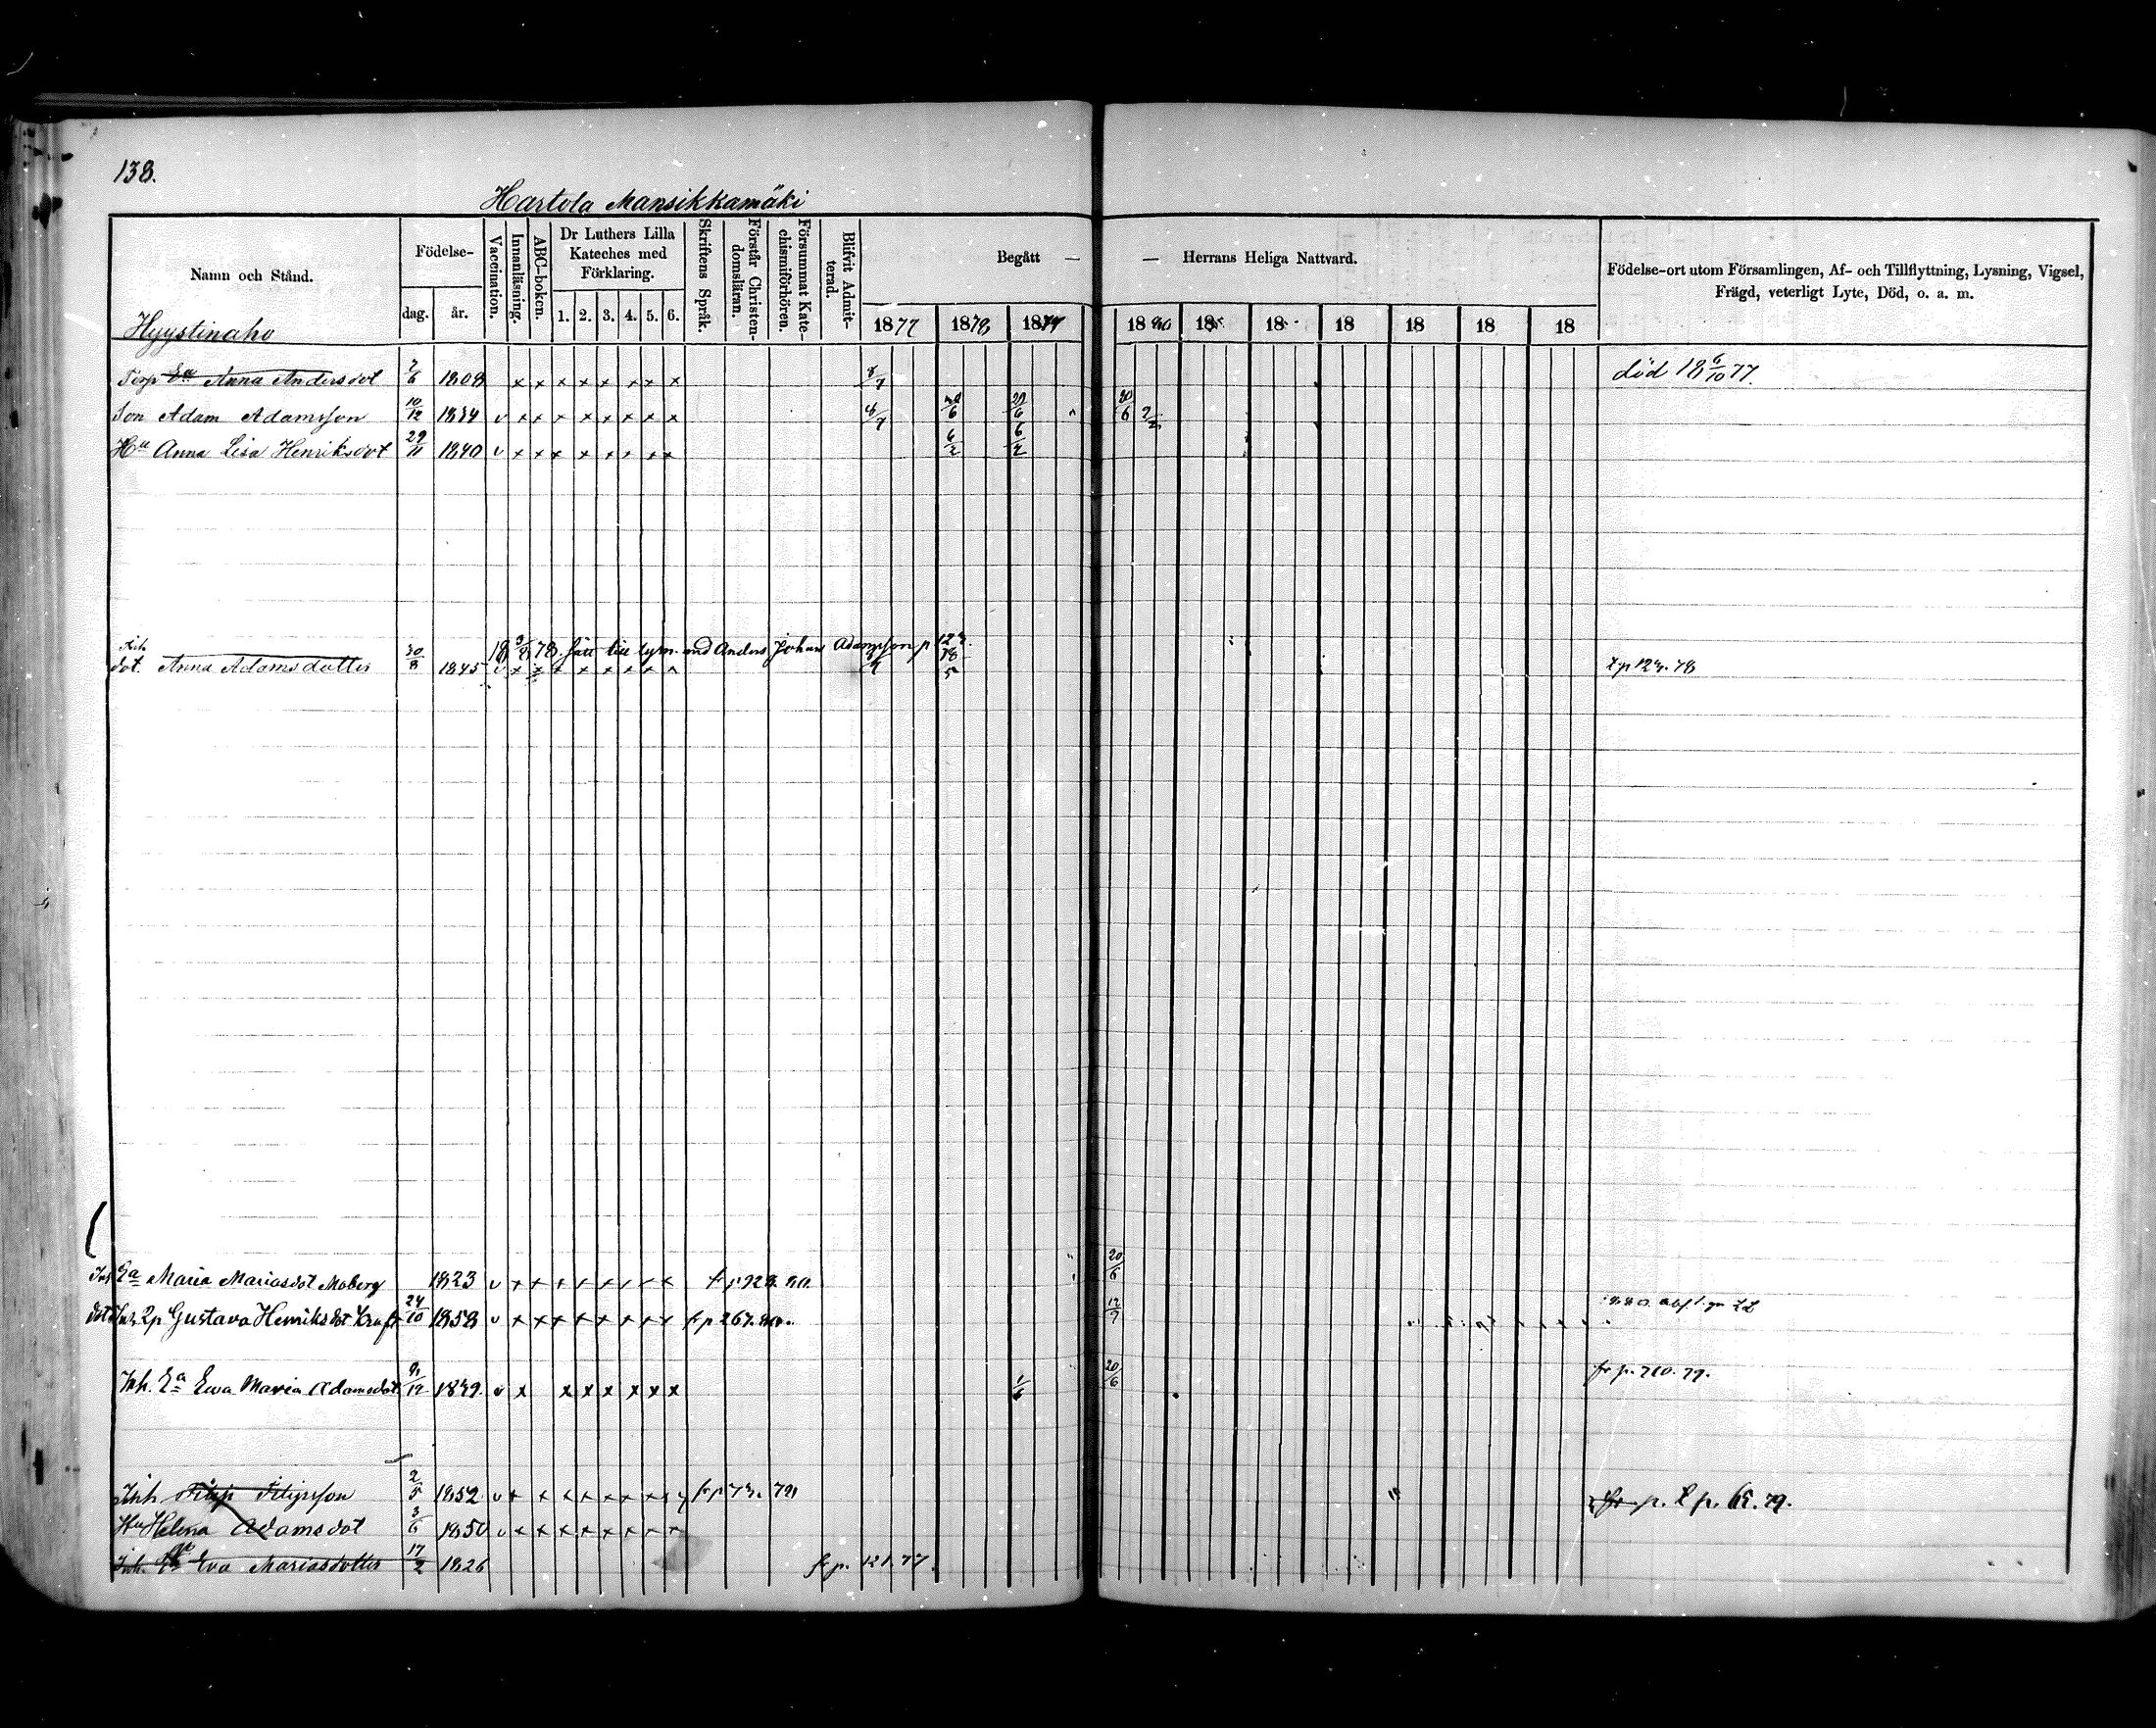 138.
Hartola Mansikkamäki
Namn och Stånd.
Födelse-
dag. år.
Vaccination.
Innanläsning.
ABC-boken.
Dr Luthers Lilla
Kateches med
Förklaring.
1. 2. 3. 4. 5. 6.
Skriftens Språk.
Förstår Christen-
domsläran.
Försummat Kate-
chismiförhören.
Blifvit Admit-
terad.
Begått — — Herrans Heliga Nattvard.
1877 1878 1879 1880 18 18 18 18 18 18
Födelse-ort utom Församlingen, Af- och Tillflyttning, Lysning, Vigsel,
Frägd, veterligt Lyte, Död, o. a. m.
Hyystinaho
Torp Ea Anna Andersdot 1808 x x x x x x x x 8/7 död 18 6/10 77.
Son Adam Adamsson 10/12 1834 v x x x x x x x x
Hu Anna Lisa Henriksdot 29/11 1840 v x x x x x x x x 6/2 6/2
till lysn. md Anders Johan Adamsson p 123
dot. Anna Adamsdotter 30/8 1845 v x x x x x x x 78 t p 123. 78
Inh Ea Maria Mariasdot Moberg 1823 v x x x x x x x x 20/6
dot Gustava Henriksdot 24/10 1858 v x x x x x x x x fr p 267. 80. 12/9
Inh. Ea Ewa Maria Adamsdot 1849 v x x x x x x x 1/6 20/6 fr p. 210. 79.
Inh Filip Filipsson 2/5 1852 v x x x x x x x fr p 73. 79 p. 65. 79.
Hu Helena Adamsdot 3/6 1850 v x x x x x x x x
Inh. Ea Eva Mariasdotter 17/2 1826 fr p. 121. 77.